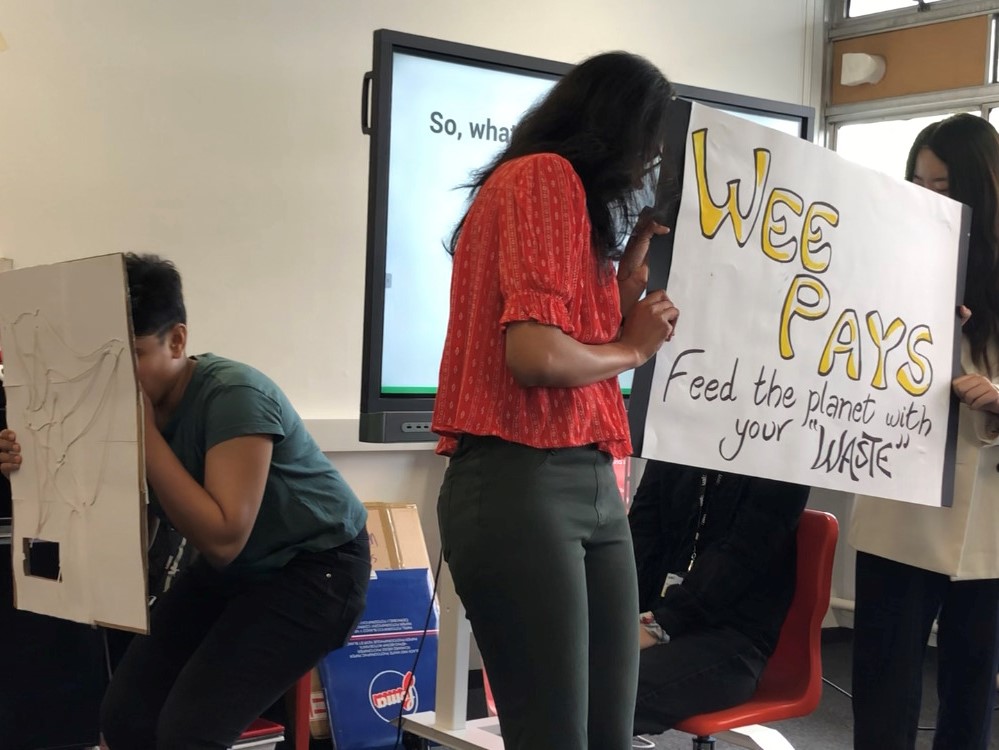 So, what
WEE
PAYS
Feed the planet with
your "WASTE"